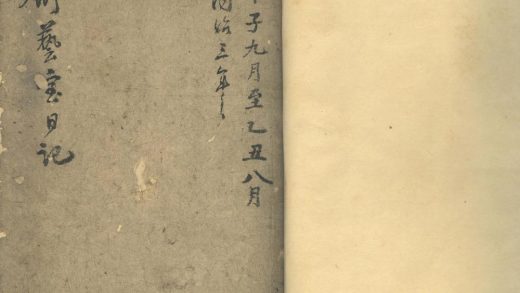 甲子九月至乙丑八月
同治三年
藝室日記